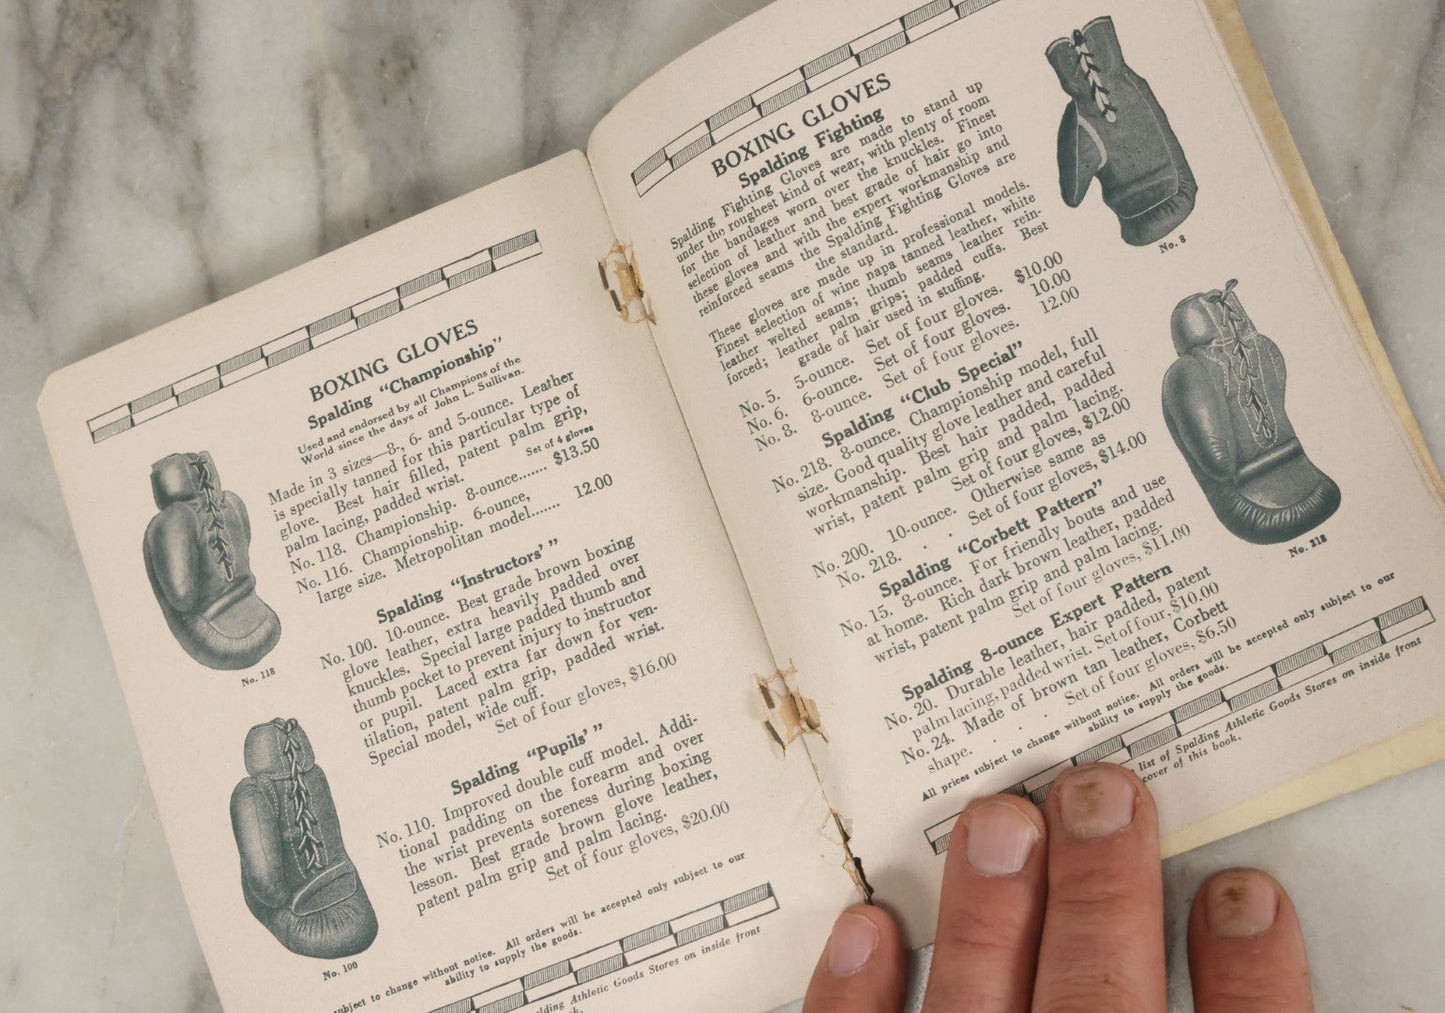 BOXING GLOVES
Spalding "Championship"
Used and endorsed by all Champions of the
World since the days of John L. Sullivan.
Made in 3 sizes—8-, 6- and 5-ounce. Leather
is specially tanned for this particular type of
glove. Best hair filled, patent palm grip,
palm lacing, padded wrist.
Set of 4 gloves
No. 118. Championship. 8-ounce...... $13.50
No. 116. Championship. 6-ounce,
large size. Metropolitan model....... 12.00
No. 118
Spalding "Instructors' "
No. 100. 10-ounce. Best grade brown boxing
glove leather, extra heavily padded over
knuckles. Special large padded thumb and
thumb pocket to prevent injury to instructor
or pupil. Laced extra far down for ven-
tilation, patent palm grip, padded wrist.
Special model, wide cuff.
Set of four gloves, $16.00
Spalding "Pupils' "
No. 110. Improved double cuff model. Addi-
tional padding on the forearm and over
the wrist prevents soreness during boxing
lesson. Best grade brown glove leather,
patent palm grip and palm lacing.
Set of four gloves, $20.00
No. 100
subject to change without notice. All orders will be accepted only subject to our
ability to supply the goods.
lding Athletic Goods Stores on inside front
BOXING GLOVES
Spalding Fighting
Spalding Fighting Gloves are made to stand up
under the roughest kind of wear, with plenty of room
for the bandages worn over the knuckles. Finest
selection of leather and best grade of hair go into
these gloves and with the expert workmanship and
reinforced seams the Spalding Fighting Gloves are
the standard.
These gloves are made up in professional models.
Finest selection of wine napa tanned leather, white
leather welted seams; thumb seams leather rein-
forced; leather palm grips; padded cuffs. Best
grade of hair used in stuffing.
No. 5. 5-ounce. Set of four gloves. $10.00
No. 6. 6-ounce. Set of four gloves. 10.00
No. 8. 8-ounce. Set of four gloves. 12.00
No. 8
Spalding "Club Special"
No. 218. 8-ounce. Championship model, full
size. Good quality glove leather and careful
workmanship. Best hair padded, padded
wrist, patent palm grip and palm lacing.
Set of four gloves, $12.00
No. 200. 10-ounce. Otherwise same as
No. 218. . . Set of four gloves, $14.00
Spalding "Corbett Pattern"
No. 15. 8-ounce. For friendly bouts and use
at home. Rich dark brown leather, padded
wrist, patent palm grip and palm lacing.
Set of four gloves, $11.00
No. 218
Spalding 8-ounce Expert Pattern
No. 20. Durable leather, hair padded, patent
palm lacing, padded wrist. Set of four, $10.00
No. 24. Made of brown tan leather, Corbett
shape. . . . Set of four gloves, $6.50
All prices subject to change without notice. All orders will be accepted only subject to our
ability to supply the goods.
list of Spalding Athletic Goods Stores on inside front
cover of this book.